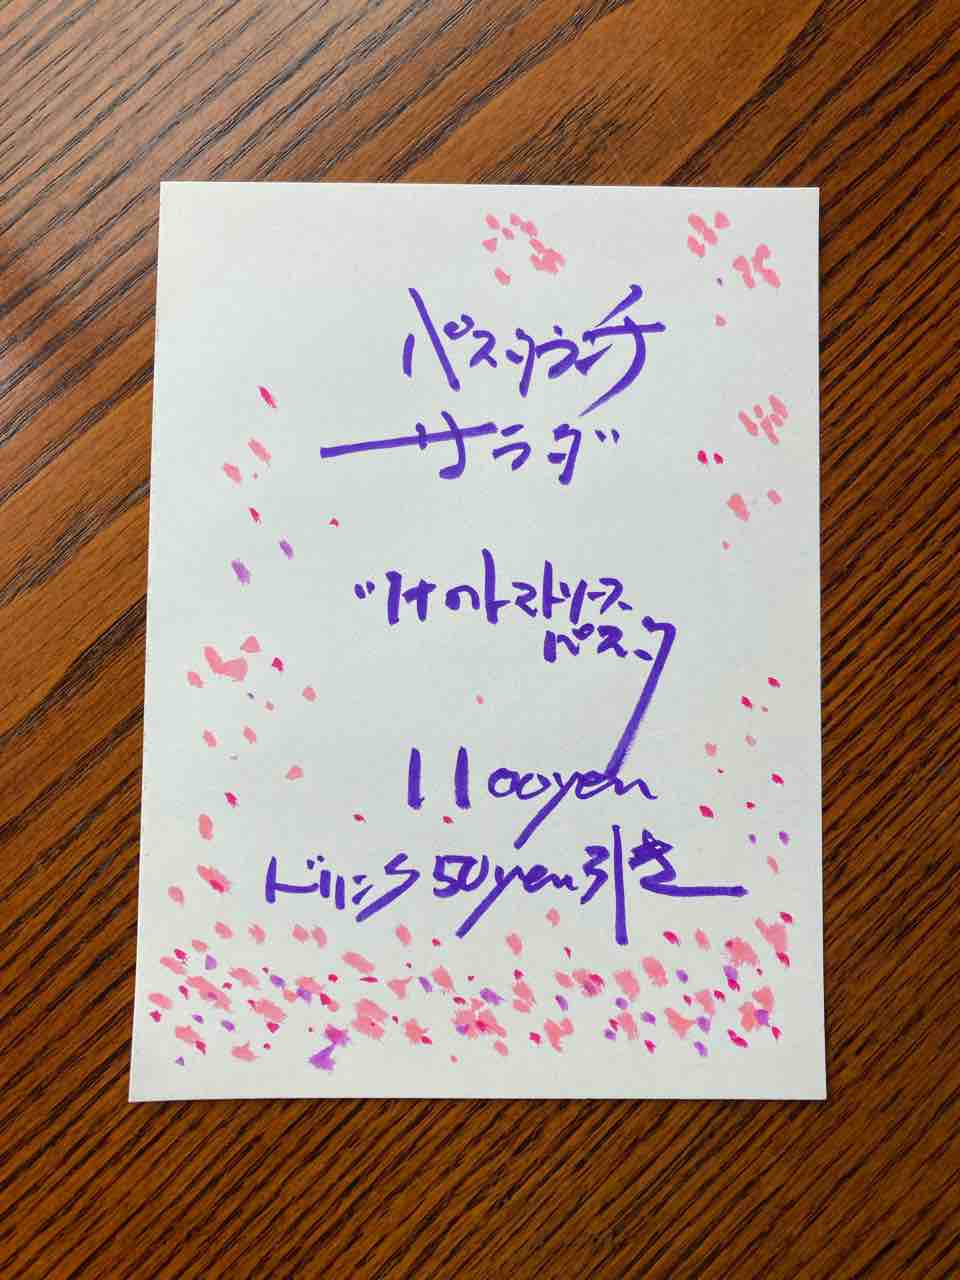 パスタランチ
サラダ
ツナのトマトソース
パスタ
1100yen
ドリンク50yen引き